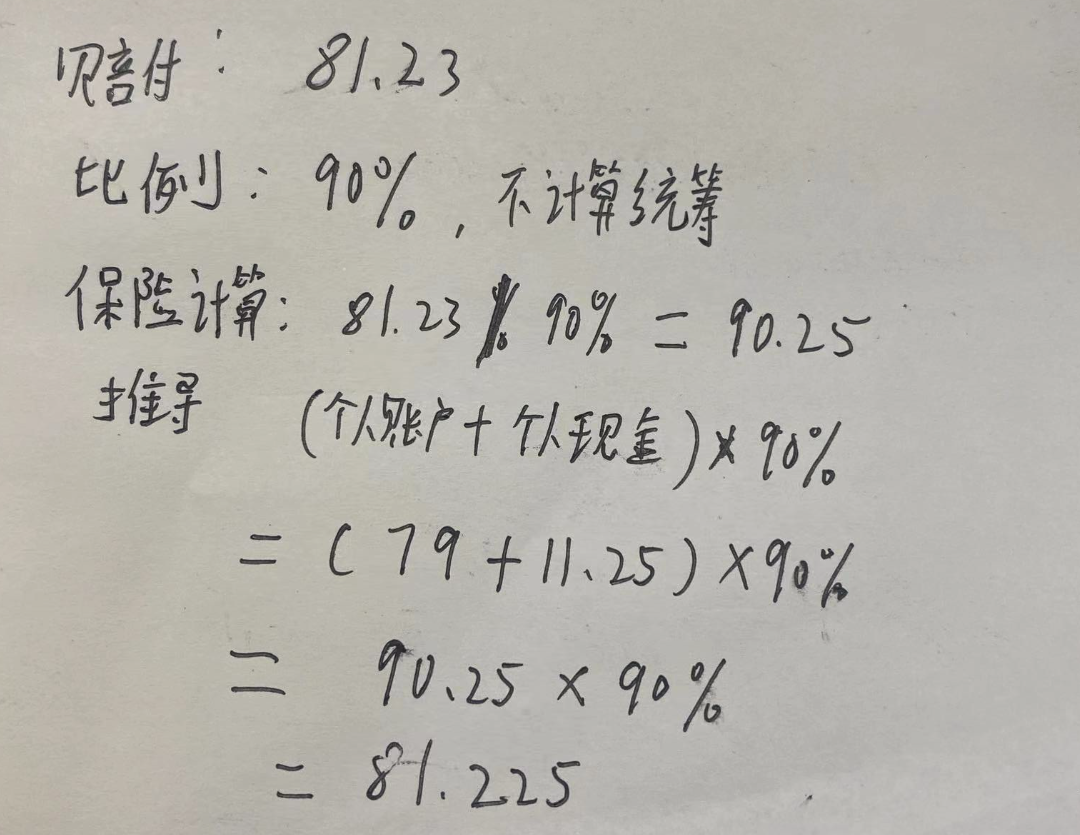 赔付: 81.23
比例: 90%, 不计算统筹
保险计算: 81.23 / 90% = 90.25
推导 (个人账户+个人现金)×90%
= (79+11.25)×90%
= 90.25×90%
= 81.225